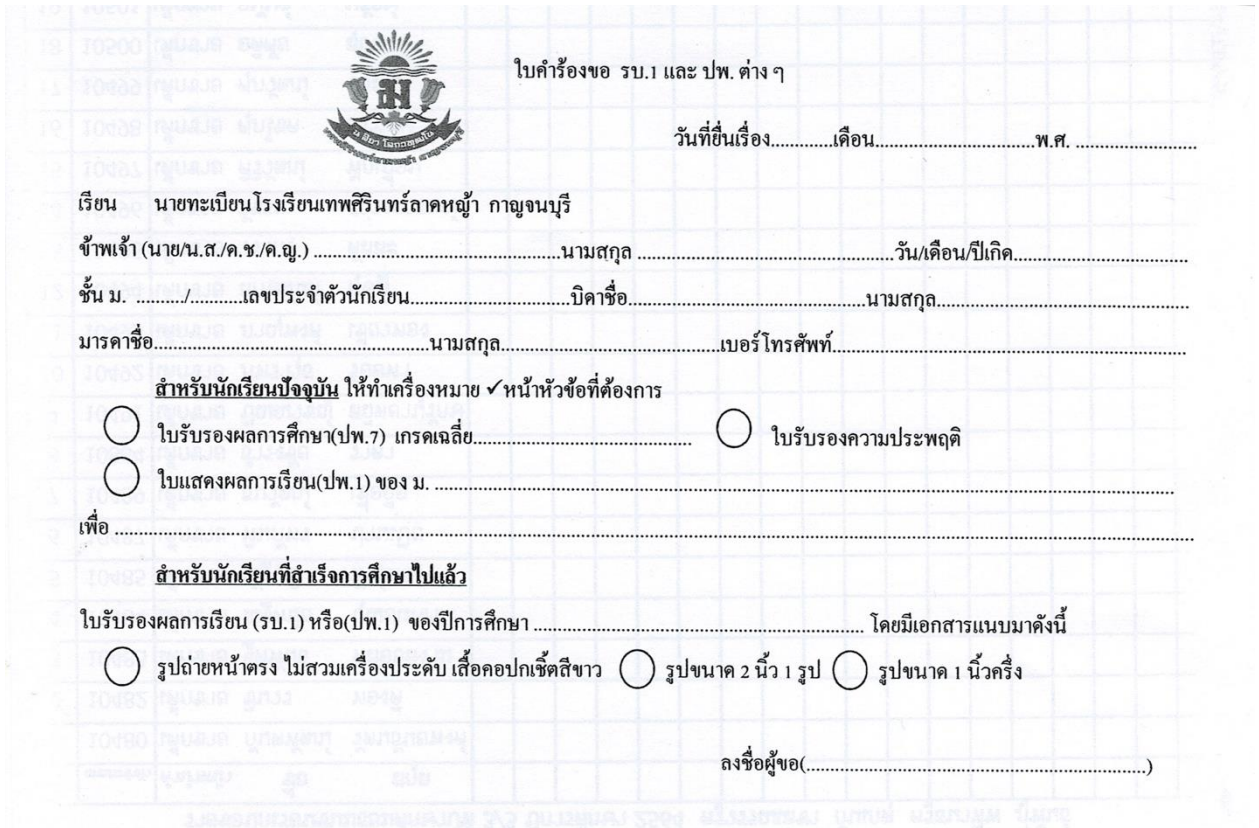 ใบคำร้องขอ รบ.1 และ ปพ. ต่าง ๆ
วันที่ยื่นเรื่อง............เดือน................................พ.ศ. .........................
เรียน นายทะเบียนโรงเรียนเทพศิรินทร์ลาดหญ้า กาญจนบุรี
ข้าพเจ้า (นาย/น.ส./ด.ช./ด.ญ.) ..................................................นามสกุล ....................................................วัน/เดือน/ปีเกิด...................................
ชั้น ม. ............/...........เลขประจำตัวนักเรียน................................บิดาชื่อ................................................นามสกุล...................................................
มารดาชื่อ........................................................นามสกุล.............................................เบอร์โทรศัพท์........................................................................
สำหรับนักเรียนปัจจุบัน ให้ทำเครื่องหมาย ✓หน้าหัวข้อที่ต้องการ
ใบรับรองผลการศึกษา(ปพ.7) เกรดเฉลี่ย............................................ ใบรับรองความประพฤติ
ใบแสดงผลการเรียน(ปพ.1) ของ ม. ......................................................................................................................................................
เพื่อ............................................................................................................................................................................................................................
สำหรับนักเรียนที่สำเร็จการศึกษาไปแล้ว
ใบรับรองผลการเรียน (รบ.1) หรือ(ปพ.1) ของปีการศึกษา ................................................................... โดยมีเอกสารแนบมาดังนี้
รูปถ่ายหน้าตรง ไม่สวมเครื่องประดับ เสื้อคอปกเชิ้ตสีขาว รูปขนาด 2 นิ้ว 1 รูป รูปขนาด 1 นิ้วครึ่ง
ลงชื่อผู้ขอ(.....................................................................)